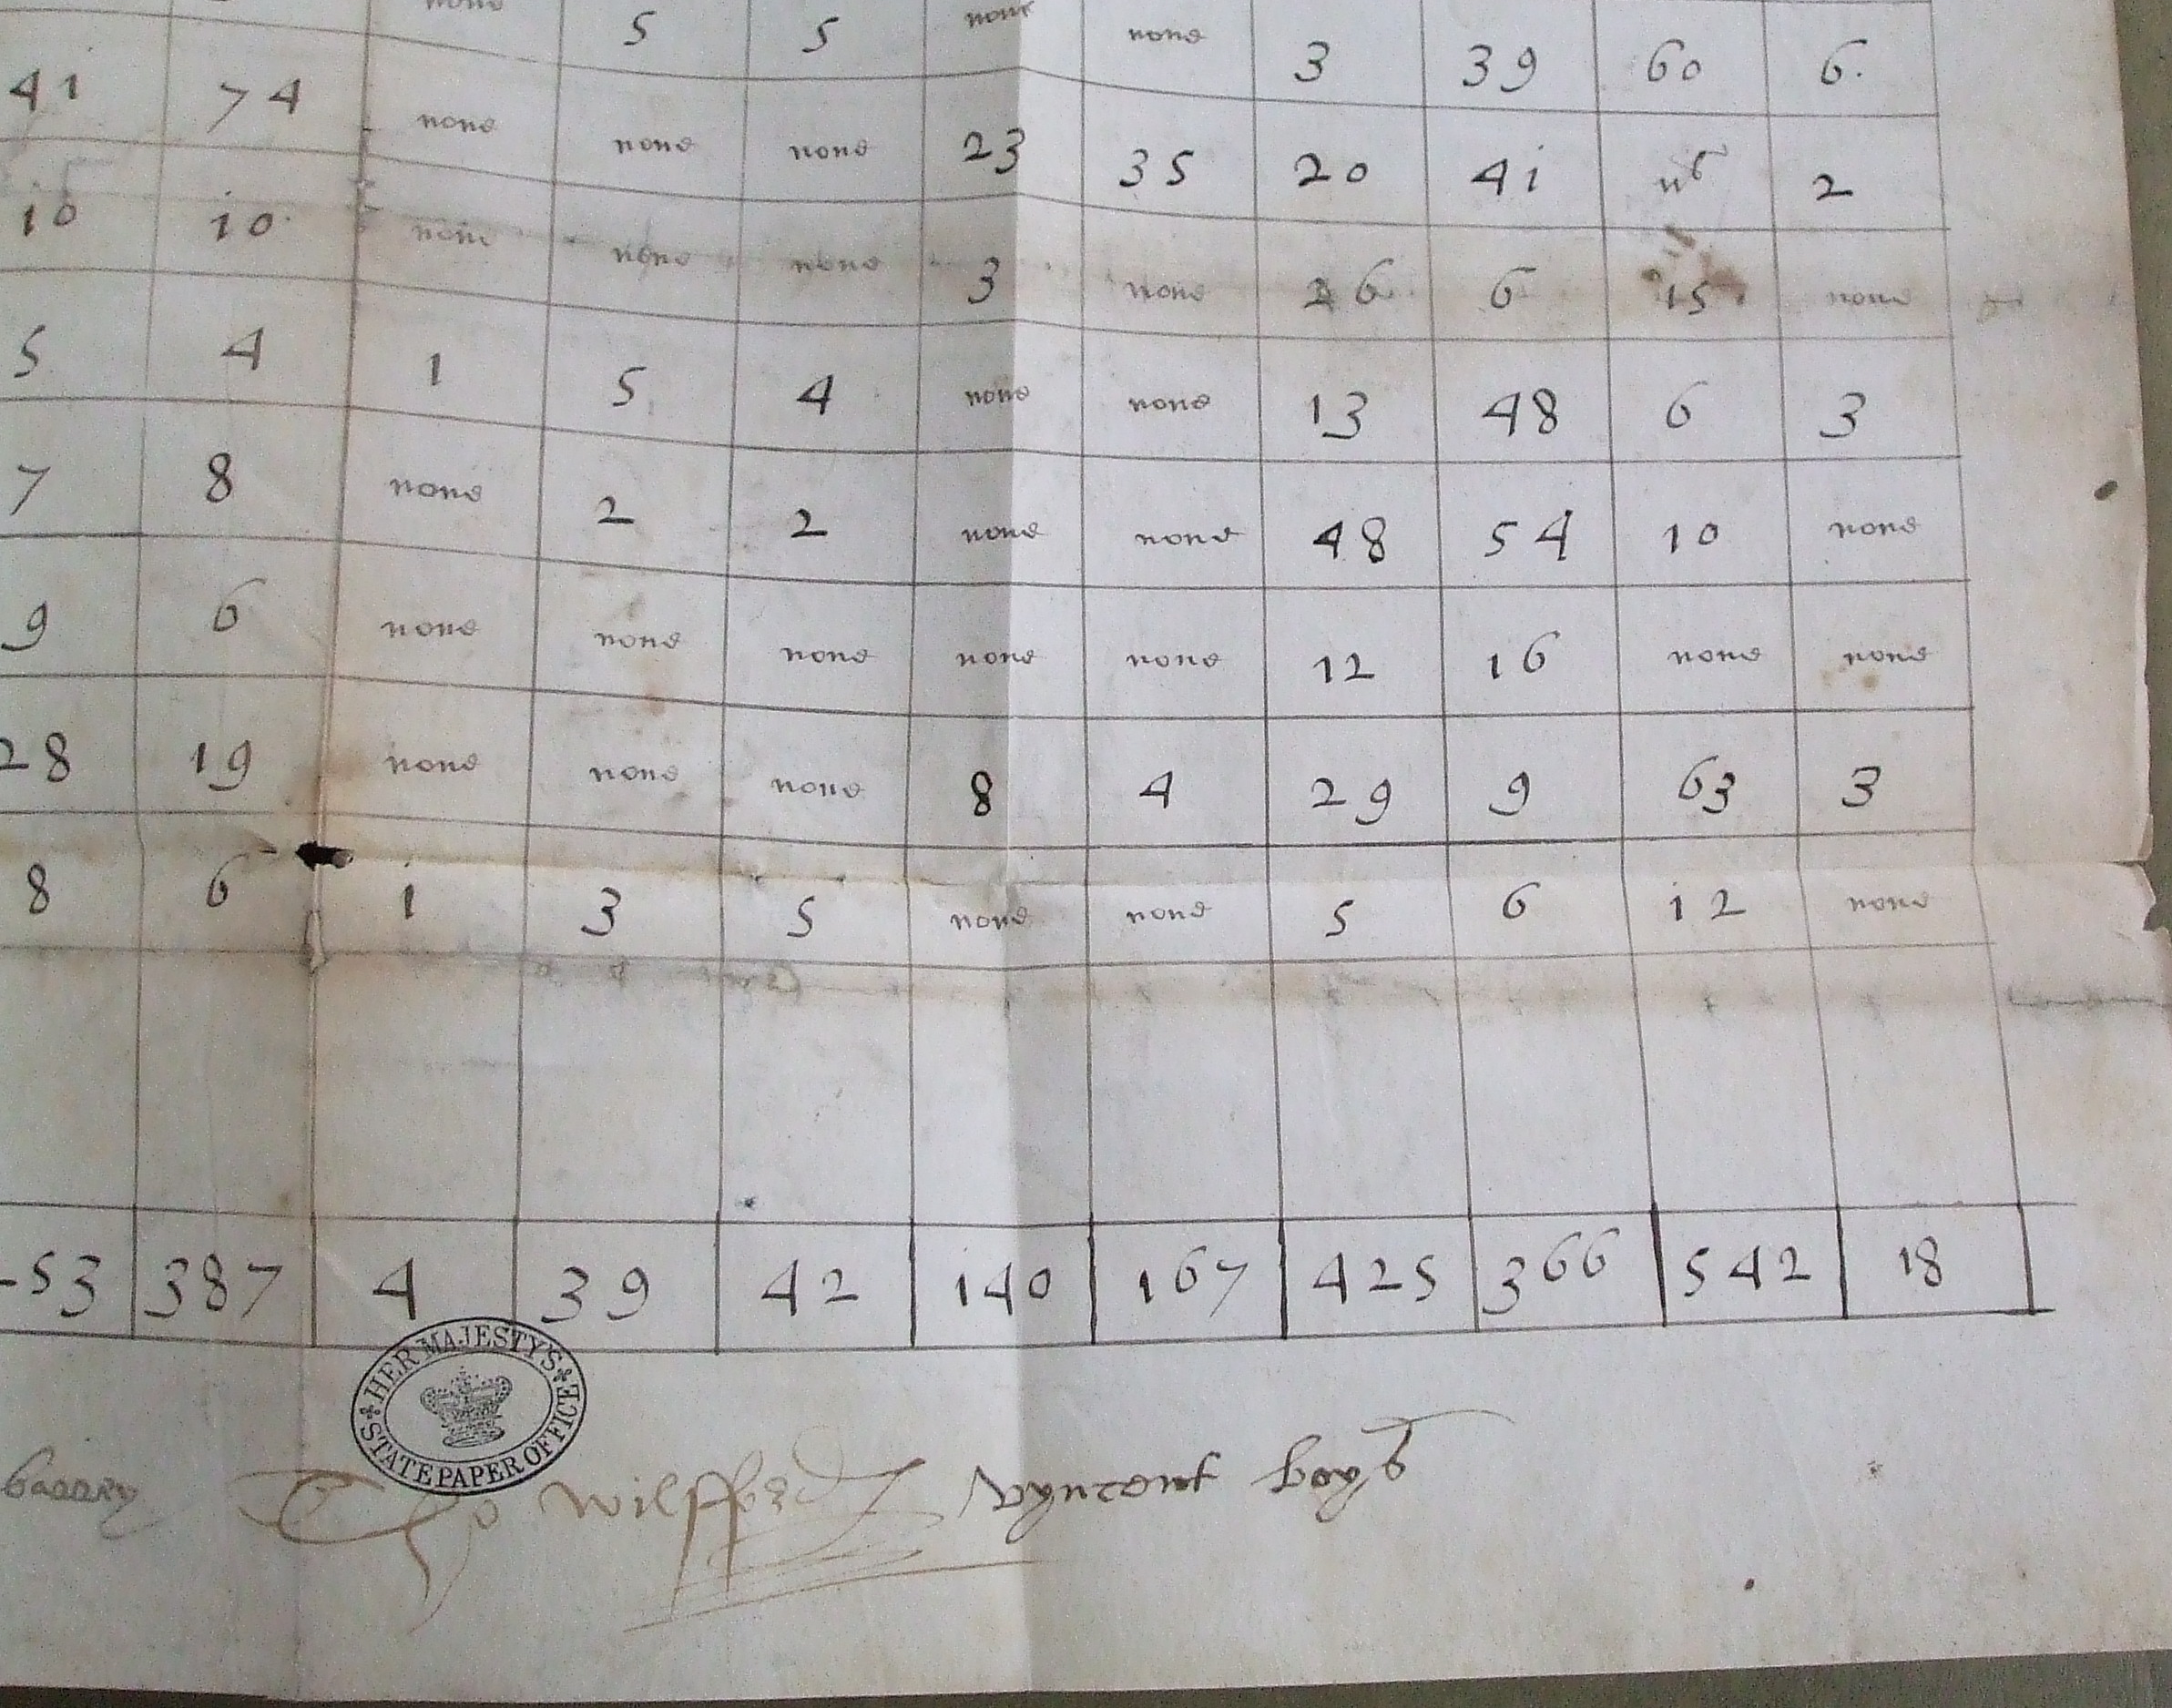 none 5 5 none none 3 39 60 6.
41 74 none none none 23 35 20 41 2
10 10 none none none 3 none 26 6 15 none
5 4 1 5 4 none none 13 48 6 3
7 8 none 2 2 none none 48 54 10 none
9 6 none none none none none 12 16 none none
28 19 none none none 8 4 29 9 63 3
8 6 1 3 5 none none 5 6 12 none
53 387 4 39 42 140 167 425 366 542 18
HER MAJESTY'S
STATE PAPER OFFICE
Tho Wilfford Vyncent Boys